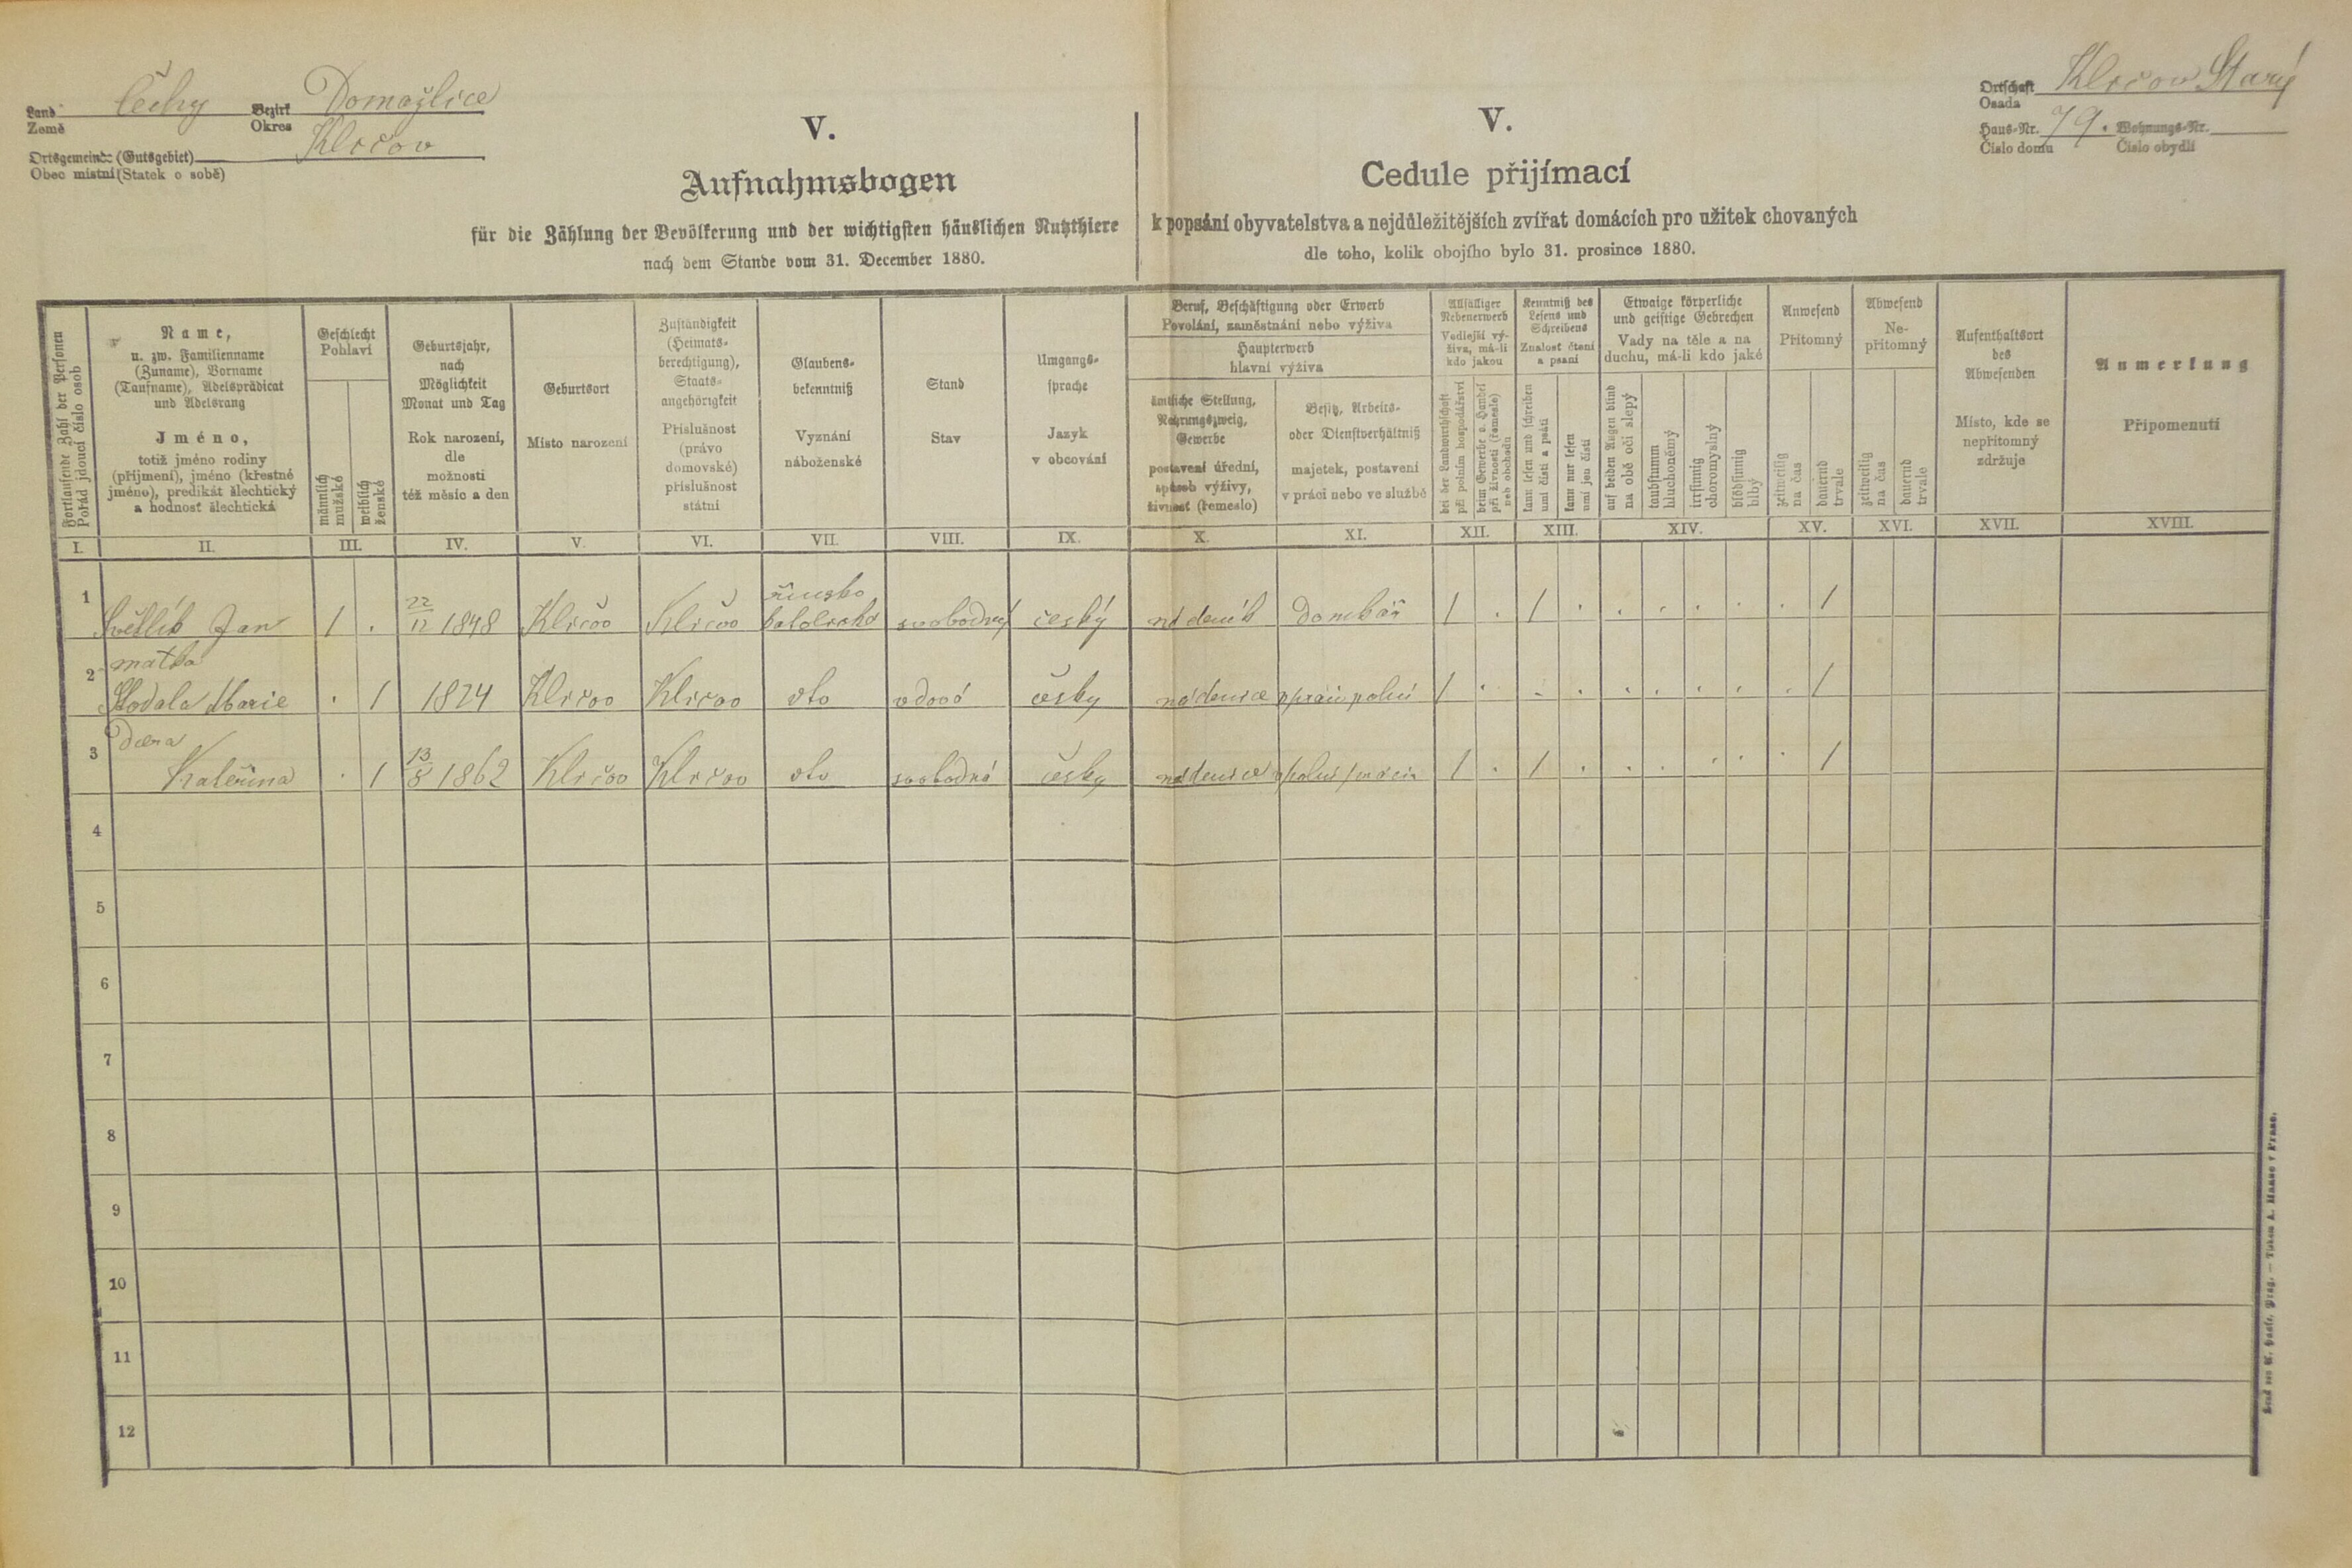 Land Čechy Bezirk Domažlice
Země Okres
Ortsgemeinde (Gutsgebiet) Kličov
Obec místní (Statek o sobě)
V.
Aufnahmsbogen
für die Zählung der Bevölkerung und der wichtigsten häuslichen Nutzthiere
nach dem Stande vom 31. December 1880.
V.
Cedule přijímací
k popsání obyvatelstva a nejdůležitějších zvířat domácích pro užitek chovaných
dle toho, kolik obojího bylo 31. prosince 1880.
Ortschaft Kličov Starý
Osada
Haus-Nr. 79. Wohnungs-Nr.
Číslo domu Číslo obydlí
Fortlaufende Zahl der Personen
Pořád jdoucí číslo osob
Name,
u. zw. Familienname
(Zuname), Vorname
(Taufname), Adelsprädicat
und Adelsrang
Jméno,
totiž jméno rodiny
(příjmení), jméno (křestné
jméno), predikát šlechtický
a hodnost šlechtická
Geschlecht
Pohlaví
männlich
mužské
weiblich
ženské
Geburtsjahr,
nach
Möglichkeit
Monat und Tag
Rok narození,
dle
možnosti
též měsíc a den
Geburtsort
Místo narození
Zuständigkeit
(Heimats-
berechtigung),
Staats-
angehörigkeit
Příslušnost
(právo
domovské)
příslušnost
státní
Glaubens-
bekenntniß
Vyznání
náboženské
Stand
Stav
Umgangs-
sprache
Jazyk
v obcování
Beruf, Beschäftigung oder Erwerb
Povolání, zaměstnání nebo výživa
Haupterwerb
hlavní výživa
ämtliche Stellung,
Nahrungszweig,
Gewerbe
postavení úřední,
spůsob výživy,
živnost (řemeslo)
Besitz, Arbeits-
oder Dienstverhältniß
majetek, postavení
v práci nebo ve službě
Allfälliger
Nebenerwerb
Vedlejší vý-
živa, má-li
kdo jakou
bei der Landwirthschaft
při polním hospodářství
beim Gewerbe o. Handel
při živnosti (řemesle)
neb obchodu
Kenntniß des
Lesens und
Schreibens
Znalost čtení
a psaní
kann lesen und schreiben
umí čísti a psáti
kann nur lesen
umí jen čísti
Etwaige körperliche
und geistige Gebrechen
Vady na těle a na
duchu, má-li kdo jaké
auf beiden Augen blind
na obě oči slepý
taubstumm
hluchoněmý
irrsinnig
choromyslný
blödsinnig
blbý
Anwesend
Přítomný
zeitweilig
na čas
dauernd
trvale
Abwesend
Ne-
přítomný
zeitweilig
na čas
dauernd
trvale
Aufenthaltsort
des
Abwesenden
Místo, kde se
nepřítomný
zdržuje
Anmerkung
Připomenutí
I. II. III. IV. V. VI. VII. VIII. IX. X. XI. XII. XIII. XIV. XV. XVI. XVII. XVIII.
1 Světlík Jan 1 . 22/12 1848 Kličov Kličov římsko katolické svobodný český nádeník domkář 1 . 1 . . . . . . 1
2 matka
Marie . 1 1824 Kličov Kličov dto vdova česky nádenice 1 . . . . . . . . 1
3 Dcera
Kateřina . 1 13/8 1862 Kličov Kličov dto svobodná česky nádenice 1 . 1 . . . . . . 1
4
5
6
7
8
9
10
11
12
Druck von A. Haase, Prag. — Tiskem A. Haase v Praze.